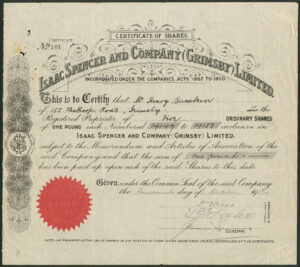 CERTIFICATE OF SHARES.
ISAAC SPENCER AND COMPANY (GRIMSBY) LIMITED.
INCORPORATED UNDER THE COMPANIES ACTS 1862 TO 1900.
This is to Certify that Mr Henry
of 155 Road, Grimsby is the
Registered Proprietor of Five ORDINARY SHARES
OF ONE POUND each Numbered to inclusive in
ISAAC SPENCER AND COMPANY (GRIMSBY) LIMITED,
subject to the Memorandum and Articles of Association of the
said Company and that the sum of One pound
has been paid up upon each of the said Shares to this date.
Given under the Common Seal of the said Company
the day of October 19
SECRETARY.
NOTE:-NO TRANSFER OF THE ABOVE SHARES OR ANY PORTION OF THEM CAN BE REGISTERED UNLESS ACCOMPANIED BY THIS CERTIFICATE.